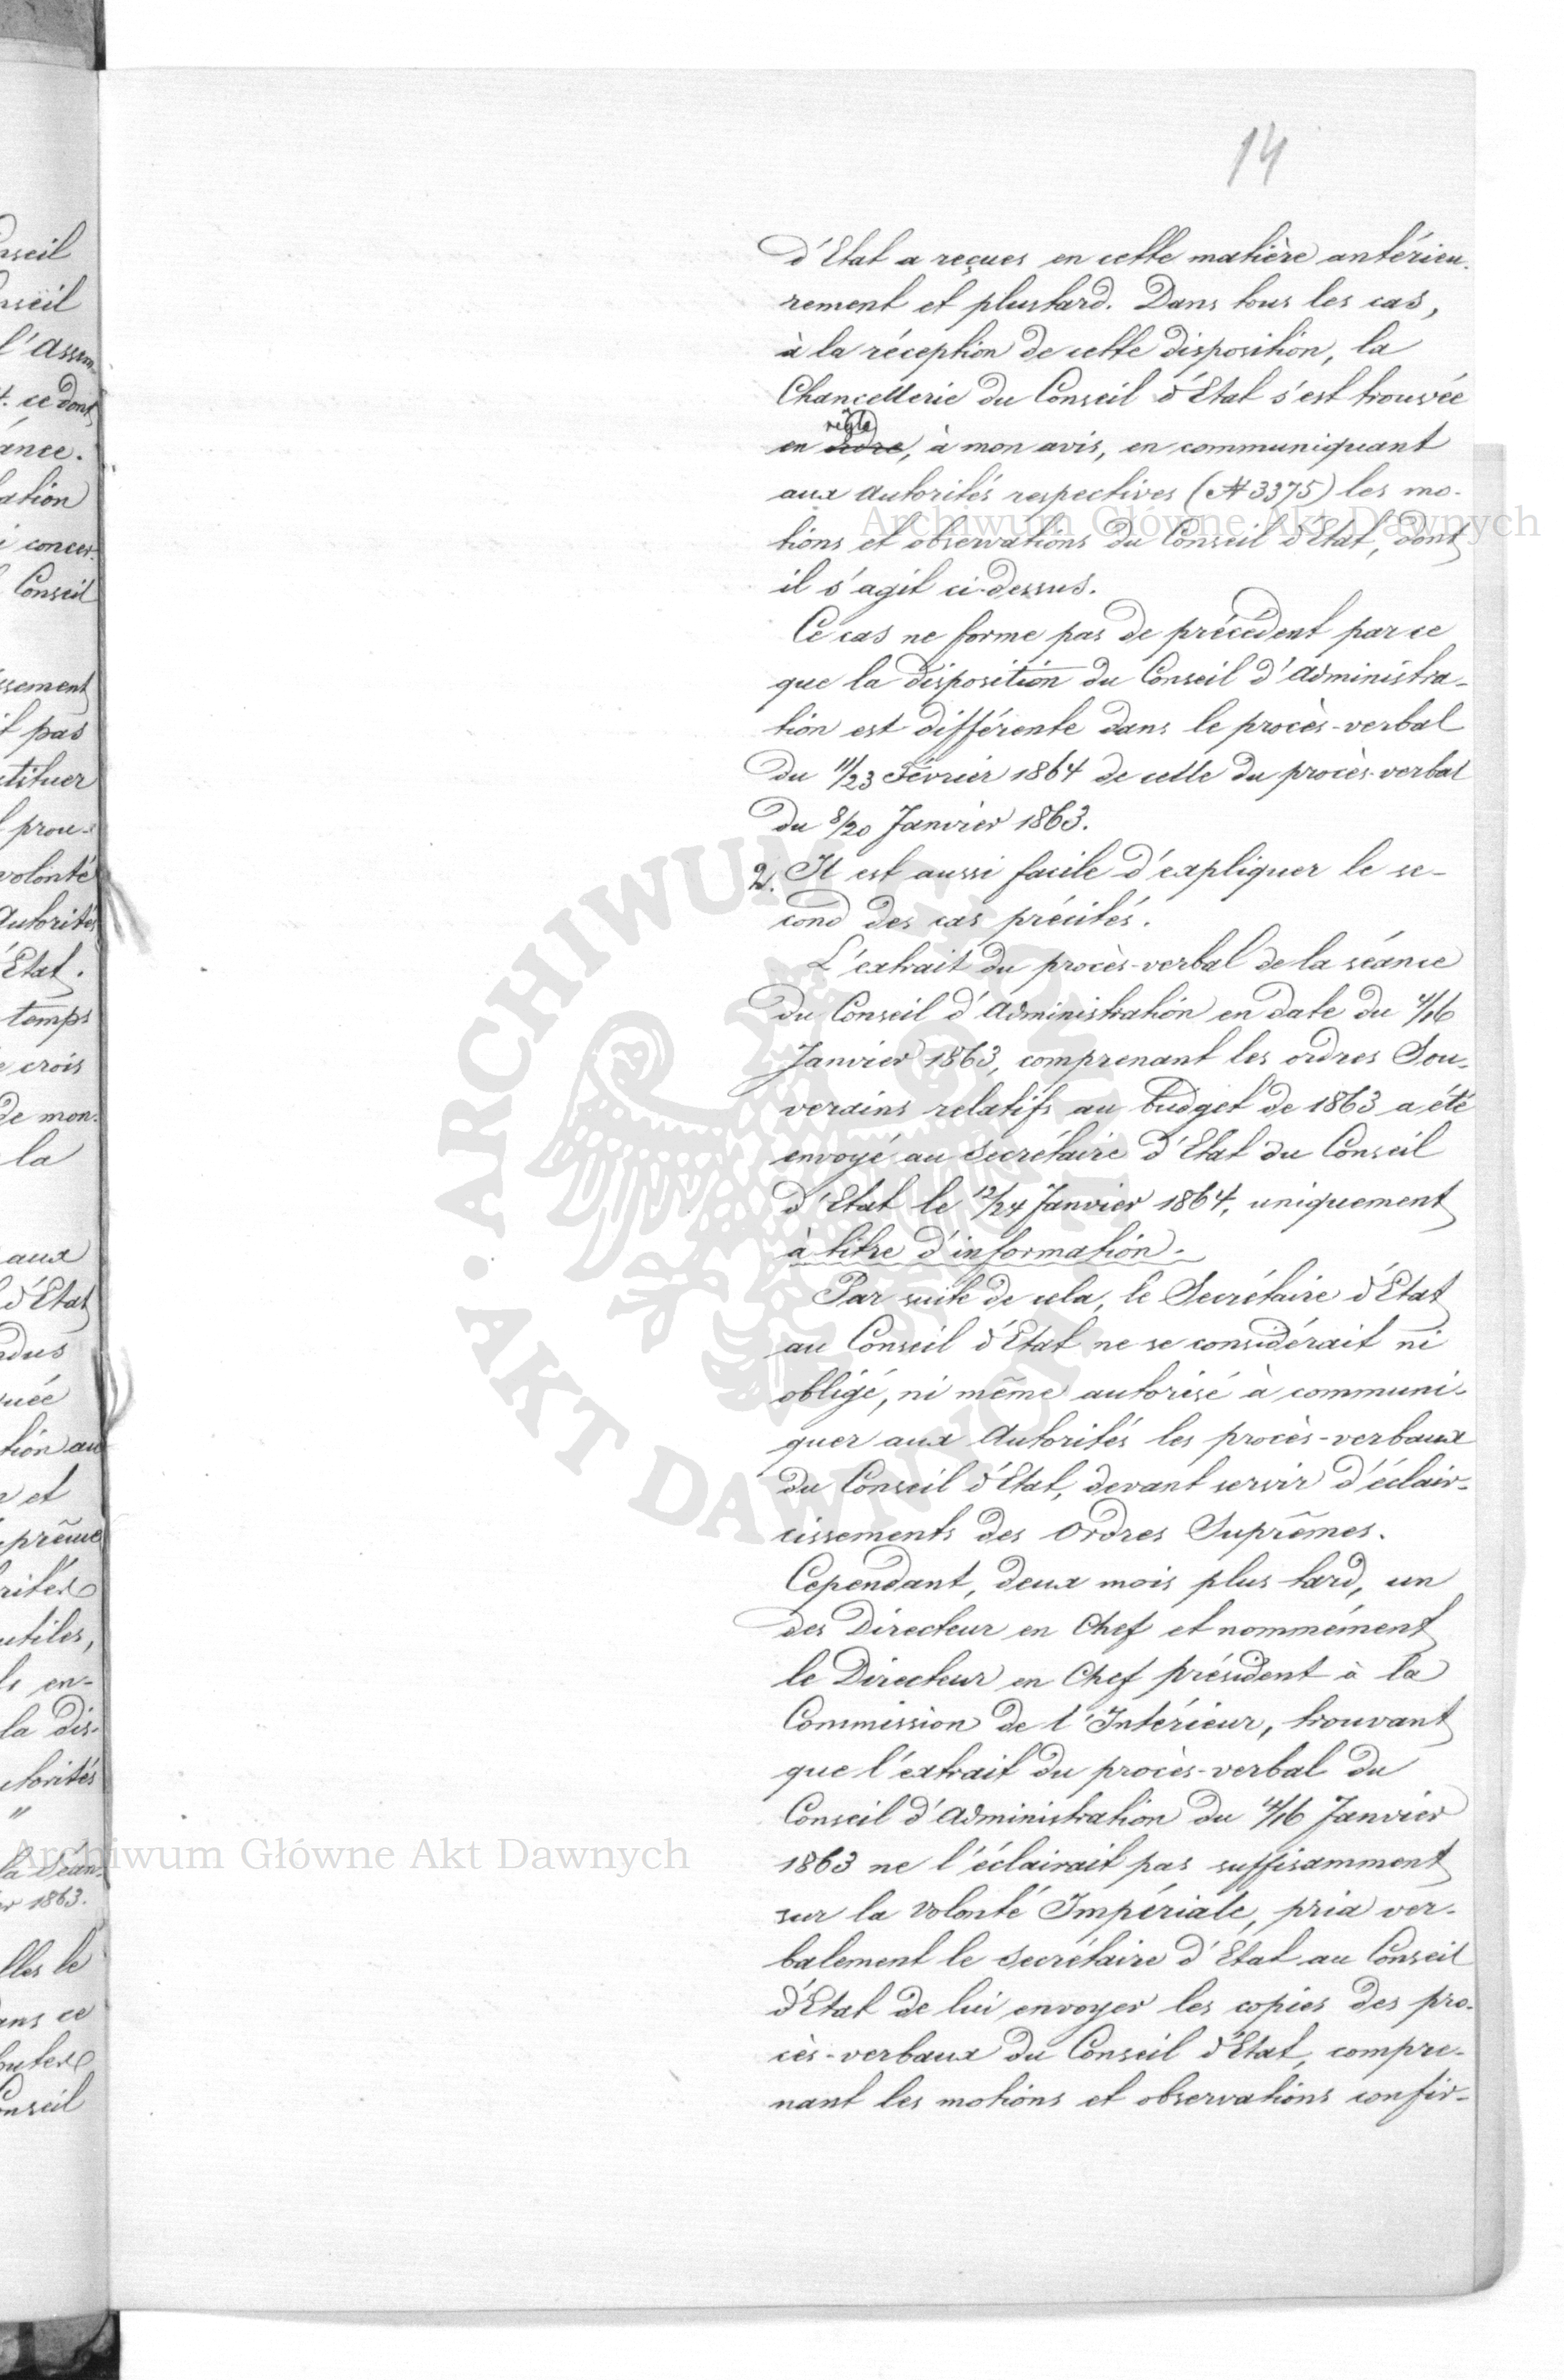 14
d'Etat a reçues en cette matière antérieu-
rement et plustard. Dans tous les cas,
à la réception de cette disposition, la
Chancellerie du Conseil d'Etat s'est trouvée
règle
en ordre, à mon avis, en communiquant
aux Autorités respectives (№ 3375) les mo-
tions et observations du Conseil d'Etat, dont
il s'agit ci-dessus.
Ce cas ne forme pas de précédent par ce
que la disposition du Conseil d'Administra-
tion est différente dans le procès-verbal
du 11/23 Février 1864 de celle du procès-verbal
du 8/20 Janvier 1863.
2. Il est aussi facile d'expliquer le se-
cond des cas précités.
L'extrait du procès-verbal de la séance
du Conseil d'Administration en date du 4/16
Janvier 1863, comprenant les ordres Sou-
verains relatifs au budget de 1863 a été
envoyé au Secrétaire d'Etat du Conseil
d'Etat le 12/24 Janvier 1864, uniquement
à titre d'information.
Par suite de cela, le Secrétaire d'Etat
au Conseil d'Etat ne se considérait ni
obligé, ni même autorisé à communi-
quer aux Autorités les procès-verbaux
du Conseil d'Etat, devant servir d'éclair-
cissements des Ordres Suprêmes.
Cependant, deux mois plus tard, un
des Directeur en Chef et nommément
le Directeur en Chef président à la
Commission de l'Intérieur, trouvant
que l'extrait du procès-verbal du
Conseil d'Administration du 4/16 Janvier
1863 ne l'éclairait pas suffisamment
sur la volonté Impériale, pria ver-
balement le Secrétaire d'Etat au Conseil
d'Etat de lui envoyer les copies des pro-
cès-verbaux du Conseil d'Etat, compre-
nant les motions et observations confir-
Archiwum Główne Akt Dawnych
Archiwum Główne Akt Dawnych
ARCHIWUM GŁÓWNE AKT DAWNYCH